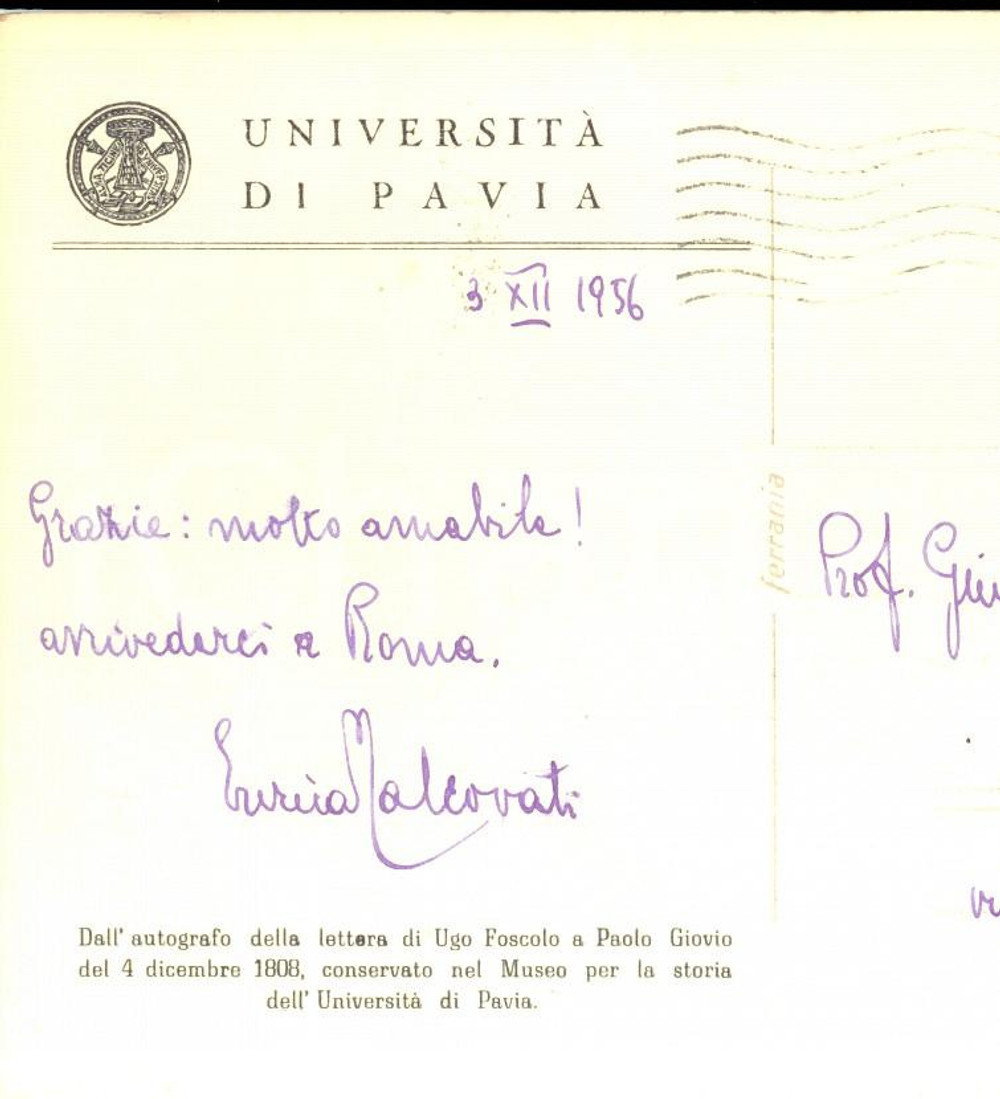 UNIVERSITÀ
DI PAVIA
3 XII 1956
Grazie: molto amabile!
arrivederci a Roma.
Enrica Malcovati
Dall' autografo della lettera di Ugo Foscolo a Paolo Giovio
del 4 dicembre 1808, conservato nel Museo per la storia
dell' Università di Pavia.
ferrania
Prof.